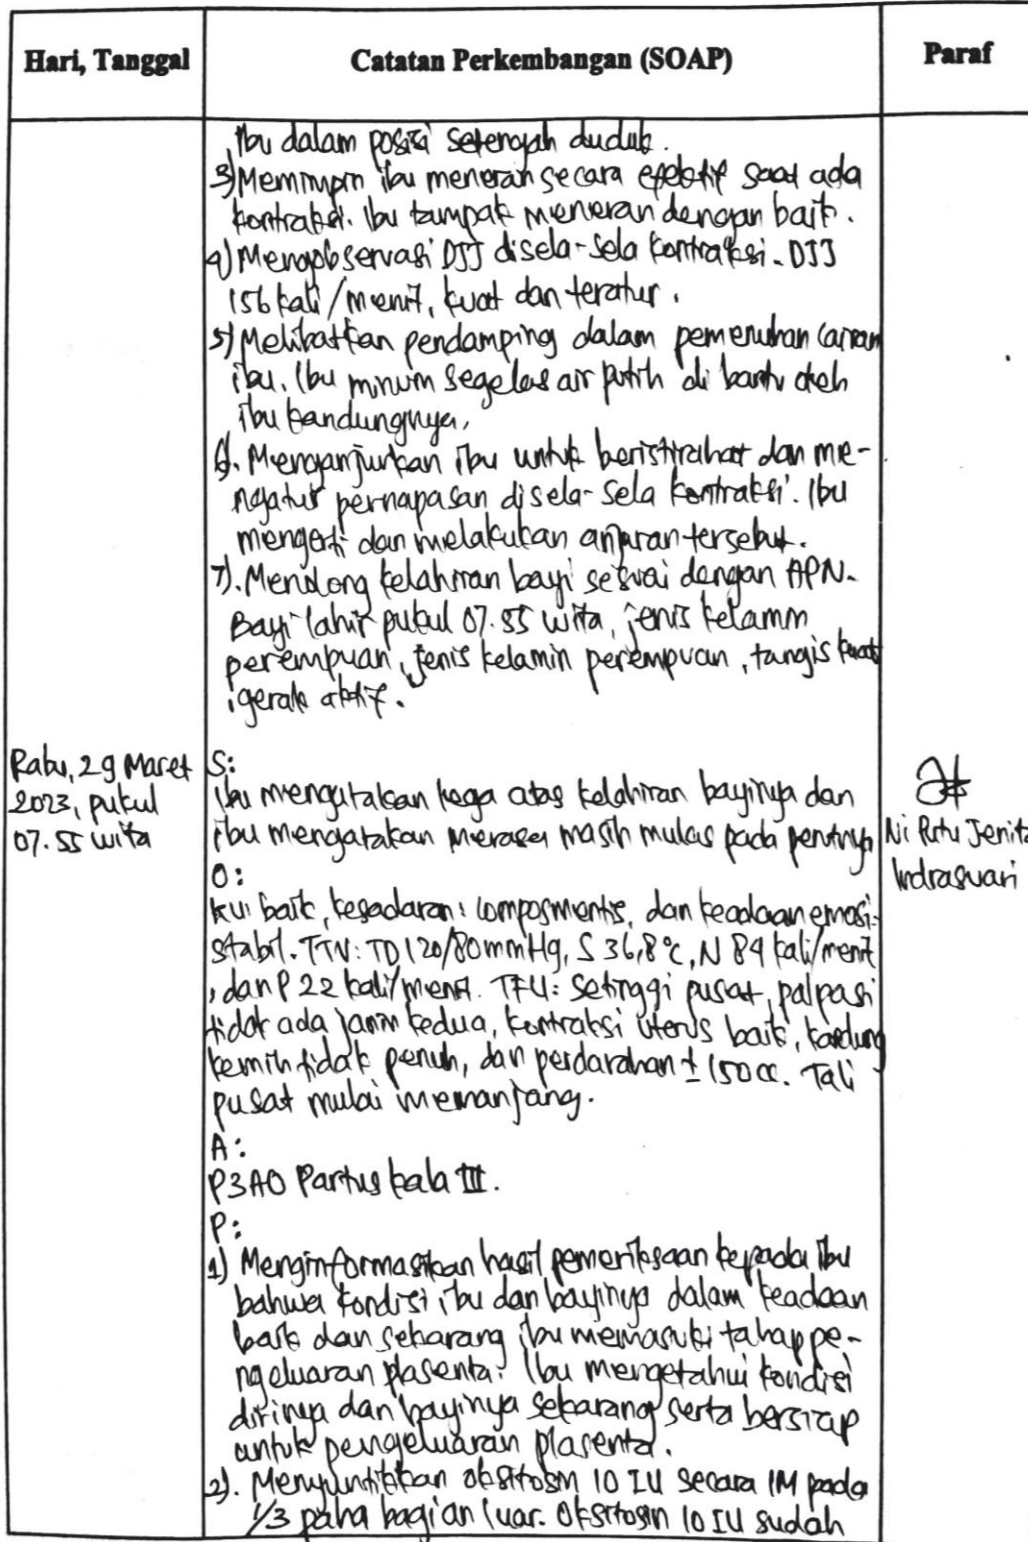 Hari, Tanggal
Catatan Perkembangan (SOAP)
Paraf
Ibu dalam posisi setengah duduk.
3) Memimpin ibu meneran secara efektif saat ada
kontraksi. Ibu tampak meneran dengan baik.
4) Mengobservasi DJJ disela-sela kontraksi. DJJ
156 kali/menit, kuat dan teratur.
5) Melibatkan pendamping dalam pemenuhan cairan
ibu. Ibu minum segelas air putih di bantu oleh
ibu kandungnya.
6. Menganjurkan ibu untuk beristirahat dan me-
ngatur pernapasan disela-sela kontraksi. Ibu
mengerti dan melakukan anjuran tersebut.
7). Menolong kelahiran bayi sesuai dengan APN.
Bayi lahir pukul 07.55 wita, jenis kelamin
perempuan, jenis kelamin perempuan, tangis kuat
, gerak aktif.
Rabu, 29 Maret
2023, pukul
07.55 wita
S:
Ibu mengatakan lega atas kelahiran bayinya dan
ibu mengatakan merasa masih mulas pada perutnya
O:
KU: baik, kesadaran: composmentis, dan keadaan emosi:
stabil. TTV: TD 120/80 mmHg, S 36,8°C, N 84 kali/menit
, dan P 22 kali/menit. TFU: setinggi pusat, palpasi
tidak ada janin kedua, kontraksi uterus baik, kandung
kemih tidak penuh, dan perdarahan ± 150 cc. Tali
pusat mulai memanjang.
A:
P3A0 Partus kala III.
P:
1) Menginformasikan hasil pemeriksaan kepada ibu
bahwa kondisi ibu dan bayinya dalam keadaan
baik dan sekarang ibu memasuki tahap pe-
ngeluaran plasenta. Ibu mengetahui kondisi
dirinya dan bayinya sekarang serta bersiap
untuk pengeluaran plasenta.
2). Menyuntikkan oksitosin 10 IU secara IM pada
1/3 paha bagian luar. Oksitosin 10 IU sudah
Ni Putu Jenita
Indraswari